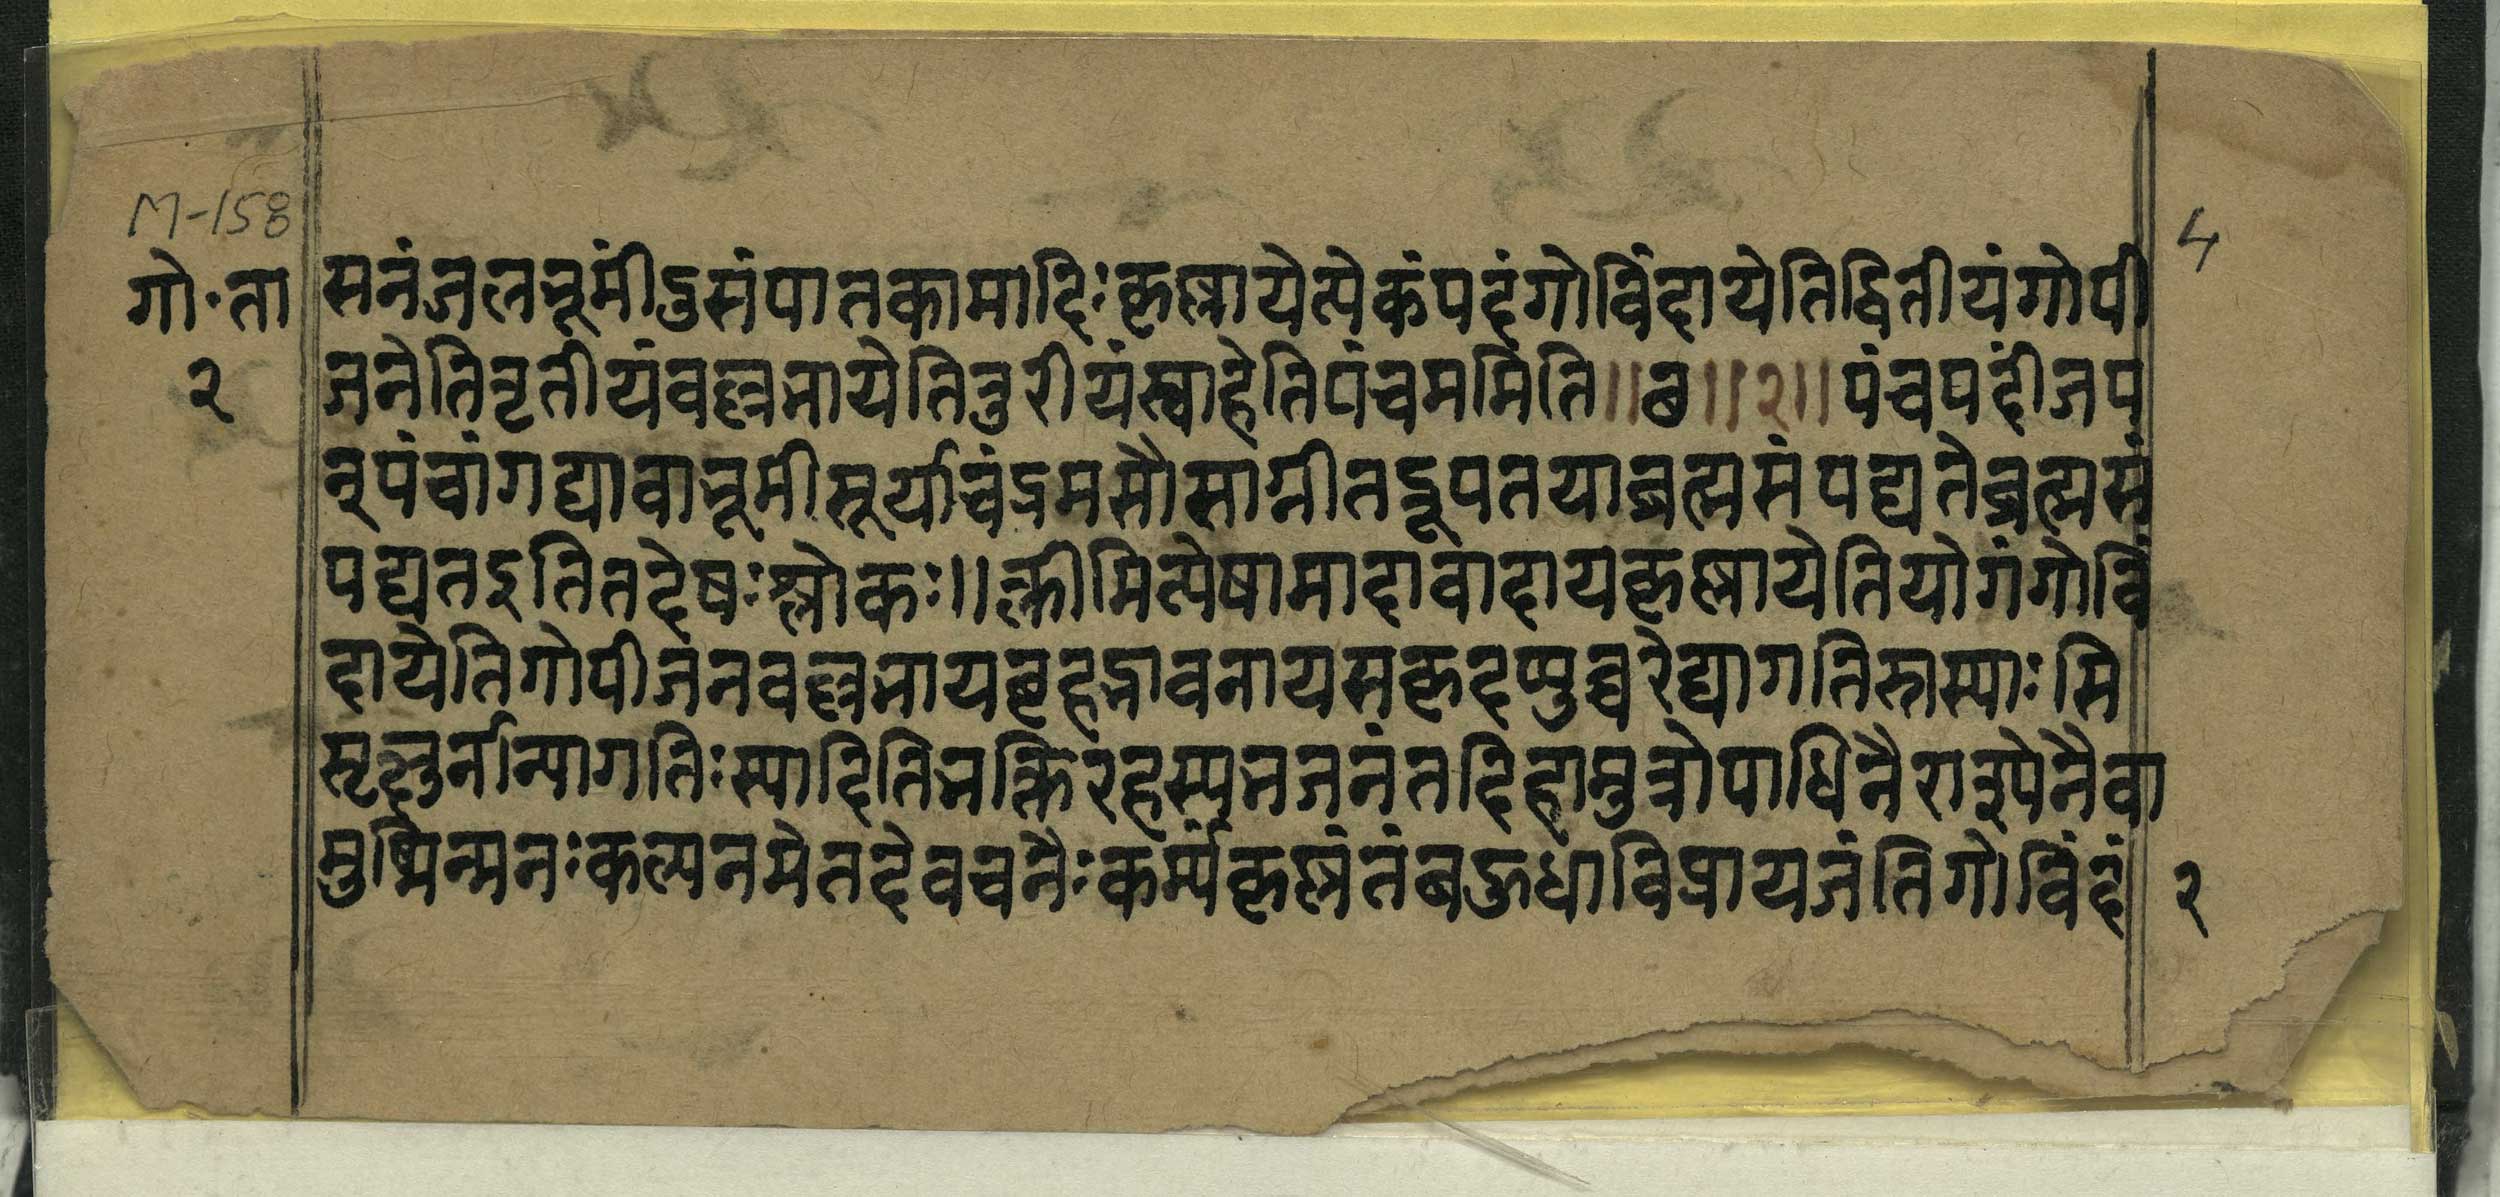 M-158
4
गो॰ता
२
सनंजलभूमींडुसंपातकामादिः कृष्णायेत्येकंपदंगोविंदायेतिद्वितीयंगोपी
जनेतितृतीयंवल्लभायेतितुरीयंस्वाहेतिपंचममिति॥ब॥२॥पंचपदींजप
न्पंचांगद्यावाभूमीसूर्याचंद्रमसौसाग्नीतद्रूपतयाब्रह्मसंपद्यतेब्रह्मसं
पद्यतइतितदेषःश्लोकः॥क्लीमित्येषामादावादायकृष्णायेतियोगंगोविं
दायेतिगोपीजनवल्लभायबृहद्भावनायसकृदप्युच्चरेद्यागतिस्तास्याःसि
सृत्नुर्नान्यागतिःस्यादितिभक्तिरहस्यभजनंतदिहामुत्रोपाधिनैराश्येनैवा
मुष्मिन्मनःकल्पनमेतदेवचनैःकर्म्यंकृष्णंतंबहुधाविप्रायजंतिगोविंदं
२